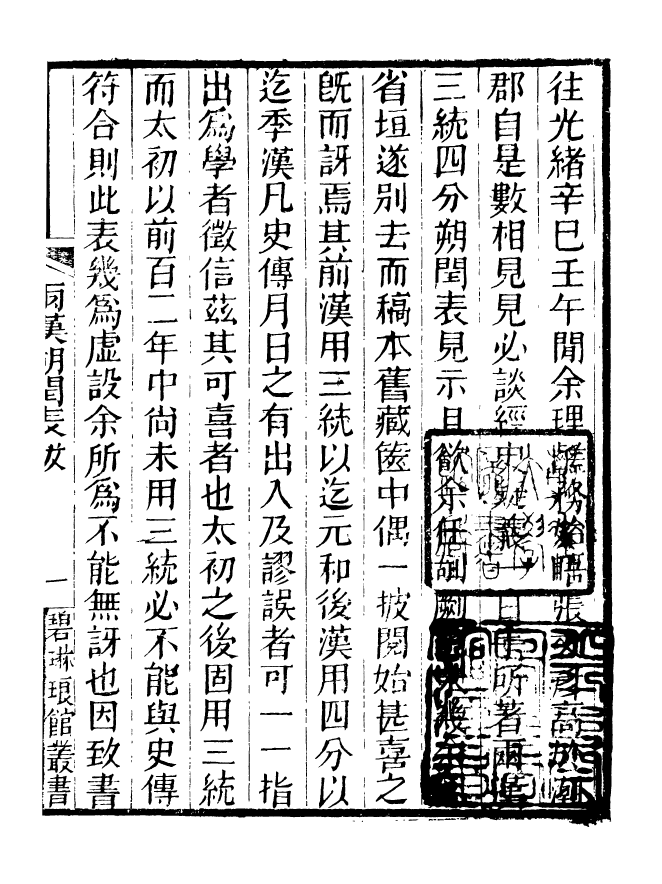 往光緒辛巳壬午閒余理醝務始晤張
郡自是數相見見必談經史疑義一日出所著兩漢
三統四分朔閏表見示且欲余任剞劂
省垣遂別去而稿本舊藏篋中偶一披閱始甚喜之
旣而訝焉其前漢用三統以迄元和後漢用四分以
迄季漢凡史傳月日之有出入及謬誤者可一一指
出爲學者徵信茲其可喜者也太初之後固用三統
而太初以前百二年中尚未用三統必不能與史傳
符合則此表幾爲虛設余所爲不能無訝也因致書
兩漢朔閏表跋
一
碧琳琅館叢書